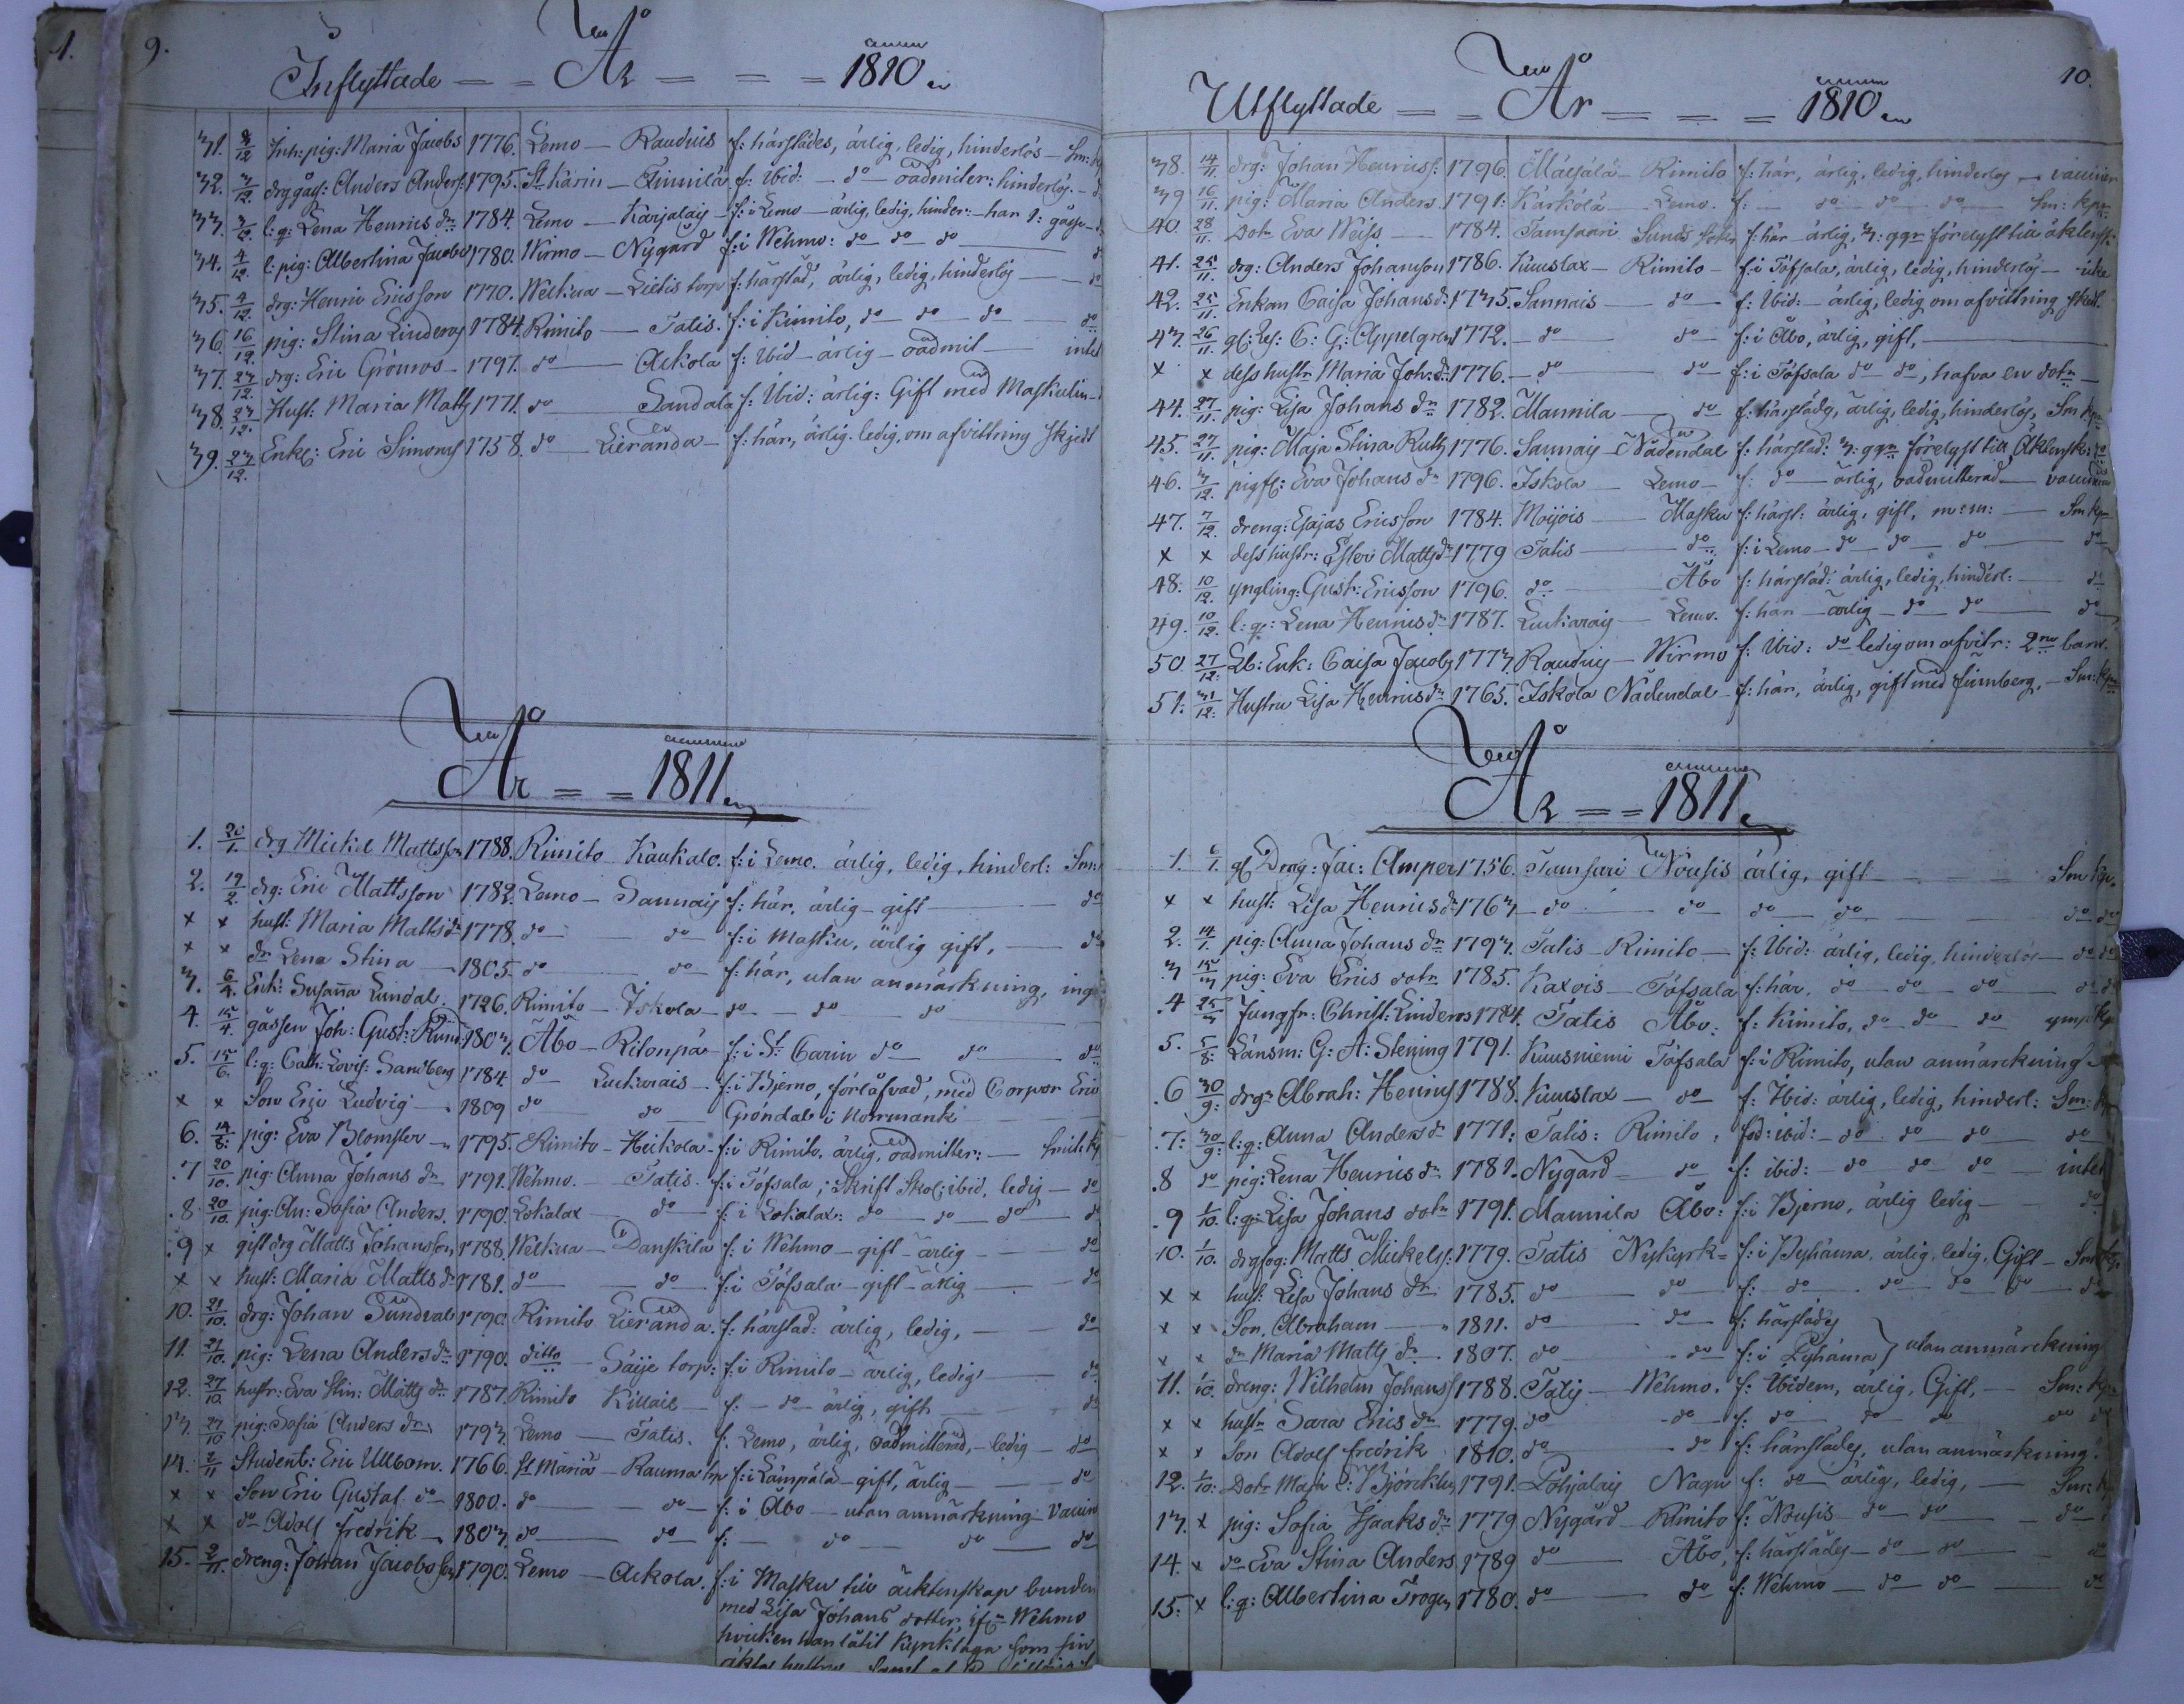 1.
9.
Inflyttade — — År — — — 1810
31. 3/12 Inh: pig: Maria Jacobs 1776. Lemo — Raudus f: härstädes, ärlig, ledig, hinderlös — Sm:
32. 3/12. drg gåss: Anders Anders: 1795. St Karin — Finnilä f: ibid: — do — oädmitter: hinderlös. —
33. 3/12. l: q: Lena Henrics dr 1784. Lemo — Karjalais — f: i Lemo — ärlig, ledig, hinder: — har 1: gåsse —
34. 4/12. l: pig: Albertina Jacobs 1780. Wirmo — Nygård f: i Wehmo: do do do
35. 4/12. drg: Henric Ericsson 1770. Weltua — Lietis torp f: härstäd, ärlig, ledig, hinderlös — do
36. 16/12. pig: Stina Linderos 1784. Rimito — Tatis. f: i Kimito, do — do — do — do
37. 23/12. drg: Eric Grönroos — 1797. do — Aekola f: ibid — ärlig — oädmit — intet
38. 23/12. Hust: Maria Matts 1771. do — Sandala f: ibid: ärlig: Gift med Maskulin —
39. 23/12. Enkl: Eric Simons 1758. do — Lieranda — f: här, ärlig. ledig, om afvittring skjedt
År = = 1811
1. 20/1. drg Mickel Mattsson 1788. Rimito Kaukalo. f: i Lemo. ärlig, ledig, hinderl: Sm:
2. 19/2. drg: Eric Mattsson 1782. Lemo — Sannais f: här. ärlig — gift — do
x x hust: Maria Matts dr 1778. do — do — f: i Masku, ärlig gift, — do
x x dr Lena Stina — 1805. do — do — f: här, utan anmärkning, ing
3. 6/4. Enk: Susanna Lundal. 1726. Rimito — Iskola — do — do — do
4. 15/4. gåssen Joh: Gust: Rund 1803. Åbo — Ritonpä — f: i St Carin do — do — do
5. 15/6. l: q: Cath: Lovis: Sandberg 1784. do Luckarais — f: i Bjerno, förlåfvad, med Corpor Eric
x x Son Eric Ludvig — 1809 do — do — Gröndal i Normanki
6. 14/8: pig: Eva Blomster — 1795. Rimito — Heikola — f: i Rimito, ärlig, oadmitter: — Smit: kp
.7 20/10. pig: Anna Johans dr 1791. Wehmo. — Tatis. f: i Töfsala; Skrift Skol: ibid. ledig — do
.8. 20/10. pig: An: Sofia Anders. 1790. Lokalax — do — f: i Lokalax: do — do — do — do
.9 x gift drg Matts Johansson, 1788. Weltua — Danskila f: i Wehmo — gift — ärlig — do
x x hust: Maria Matts dr 1781. do — do — f: i Töfsala — gift — ärlig — do
10. 21/10. drg: Johan Sundvall 1790. Rimito Lieranda. f: härstäd: ärlig, ledig, — do
11. 21/10. pig: Lena Anders dr 1790. ditto — Säije torp: f: i Rimito — ärlig, ledig — do
12. 27/10. hustr: Eva Stin: Matts dr 1787. Rimito Killais — f: — do — ärlig, gift — do
13. 27/10 pig: Sofia Anders dr 1793. Lemo — Tatis. f. Lemo, ärlig, oadmitterad, — ledig — do
14. 2/11 Student: Eric Ullbom. 1766. St Mariä — Rauma trp f: i Lampälä — gift, ärlig — do
x x Son Eric Gustaf do — 1800. do — do — f: i Åbo — utan anmärkning — Vaccin
x x do Adolf fredrik — 1803. do — do — f: — do — do — do
15. 2/11. dreng: Johan Jacobsson 1790. Lemo — Aekola. f: i Masku till äcktenskap bunden
med Lisa Johans dotter, ifrn Wehmo
hvicken han låtit kyrktaga som sin
äkta hustru
10.
Utflyttade — — År — — — 1810
38. 14/11. drg: Johan Henricss: 1796. Märjälä — Rimito f: här, ärlig, ledig, hinderlös — vaccine
39. 16/11. pig: Maria Anders. 1791: Kärkölä — Lemo. f: — do — do — do — Sm: kpr
40. 28/11. Dotr Eva Weiss — 1784. Tamsaari Sunds sokn f: här ärlig, 3: ggr förelyst till äktensk:
41. 25/11. drg: Anders Johansson 1786. Kuustax — Rimito — f: i Töfsala, ärlig, ledig, hinderlös — icke
42. 25/11. Enkan Caisa Johans dr 1735. Sannais — do — f: ibid: — ärlig, ledig om afvittring skedt.
43. 26/11. gl: C: G: Appelgren 1772. — do — do — f: i Åbo, ärlig, gift, —
x x dess hustr Maria Joh: dr 1776. — do — do — f: i Töfsala do do, hafva en dotr —
44. 27/11. pig: Lisa Johans dr 1782. Mannila — do f: härstädes, ärlig, ledig, hinderlös, Sm kpr
45. 27/11. pig: Maja Stina Ruth 1776. Sannais — Nådendal f: härstäd: 3: ggr förelyst till Äktensk: do
46. 3/12. pigfl: Eva Johans dr 1796. Iskola — Lemo — f: do — ärlig, oadmitterad — vaccinerad
47. 7/12. dreng: Esajas Ericsson 1784. Moijois — Masku f: härst: ärlig, gift, m: m: — Sm kpr
x x dess hustr: Ester Matts dr 1779 Tatis — do f: i Lemo — do — do — do — do
48. 10/12. yngling: Gust: Ericsson 1796. do — Åbo f: härstäd: ärlig, ledig, hinderl: — do
49. 10/12. l: q: Lena Henrics dr 1787. Luckarais — Lemo. f: här — ärlig — do — do — do
50. 27/12: Lb: Enk: Caisa Jacobs 1773. Raudus — Wirmo f: ibid: do ledig om afvitr: 2ne barn.
51: 31/12: Hustru Lisa Henrics dr 1765. Iskola Nådendal — f: här, ärlig, gift med furnberg, — Sm: kpr
År = = 1811
1. 6/1. gl Drag: Jac: Amper 1756. Tamsari Nousis ärlig, gift — Sm kpr.
x x hust: Lisa Henrics dr 1763 — do — do do — do — do do
2. 14/1. pig: Anna Johans dr 1793. Tatis — Rimito — f: ibid: ärlig, ledig, hinderlös — do do
.3 15/3 pig: Eva Erics dotr 1785. Kaxois — Töfsala f: här. do — do — do — do do
.4 25/3 Jungfr: Christ: Linderos 1784. Tatis Åbo: f: Kimito, do do do
5. 5/8: Länsm: G: A: Stening 1791. Kuusniemi Töfsala f: i Rimito, utan anmärckning
.6 30/9: drgr Abrah: Henrics 1788. Kuustax — do — f: Ibid: ärlig, ledig, hinderl: Sm:
.7: 30/9: l: q: Anna Anders dr 1771: Tatis: Rimito: föd: ibid: — do do do do
.8 do pig: Lena Henrics dr 1781. Nygård — do — f: ibid: — do — do — do — intet
.9 1/10. l: q: Lisa Johans dotr 1791. Mannila Åbo: f: i Bjerno, ärlig ledig — do
10. 1/10. drgfog: Matts Mickels: 1779. Tatis Nykyrk= f: i Pyhäma, ärlig, ledig, Gift — Sm kpr
x x hust: Lisa Johans dr 1785. do — do f: do do do do do
x x Son, Abraham — 1811. do — do — f: härstädes
x x dr Maria Matts dr 1807. do — do — f: i Pyhäma } utan anmärckning
11. 1/10. dreng: Wilhelm Johanss 1788. Tatis — Wehmo. f: ibidem, ärlig, Gift, — Sm: kpr
x x hustr Sara Erics dr 1779. do — do — f: do do do do
x x Son Adolf fredrik 1810. do — do f: härstädes, utan anmärkning.
12. 1/10: Dotr Maja C: Björcklun 1791. Pohjalais Nagu f: do ärlig, ledig, — Sm: kp
13. x pig: Sofia Isaaks dr 1779 Nygård — Rimito f: Nousis do do — do
14. x do Eva Stina Anders 1789 do — Åbo, f: härstädes — do — do — do
15: x l: q: Albertina Trogen 1780. do — do f: Wehmo — do — do — do